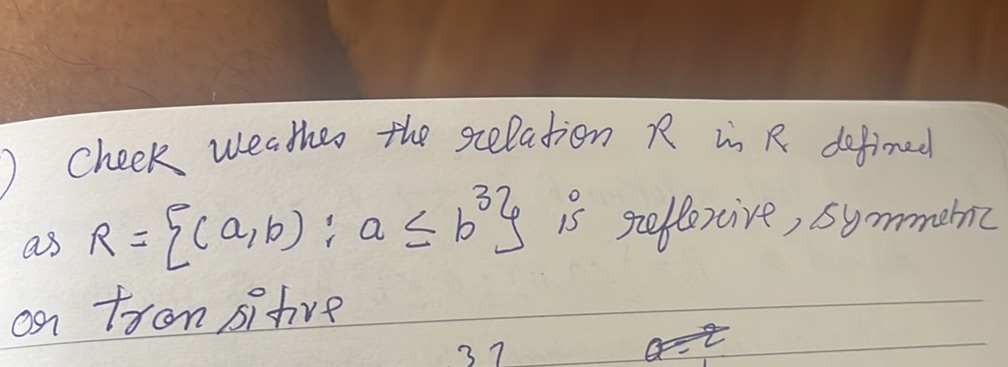 ) Check weathes the relation R in R defined
as R = {(a,b) : a ≤ b³} is reflexive, symmetric
or transitive
3}